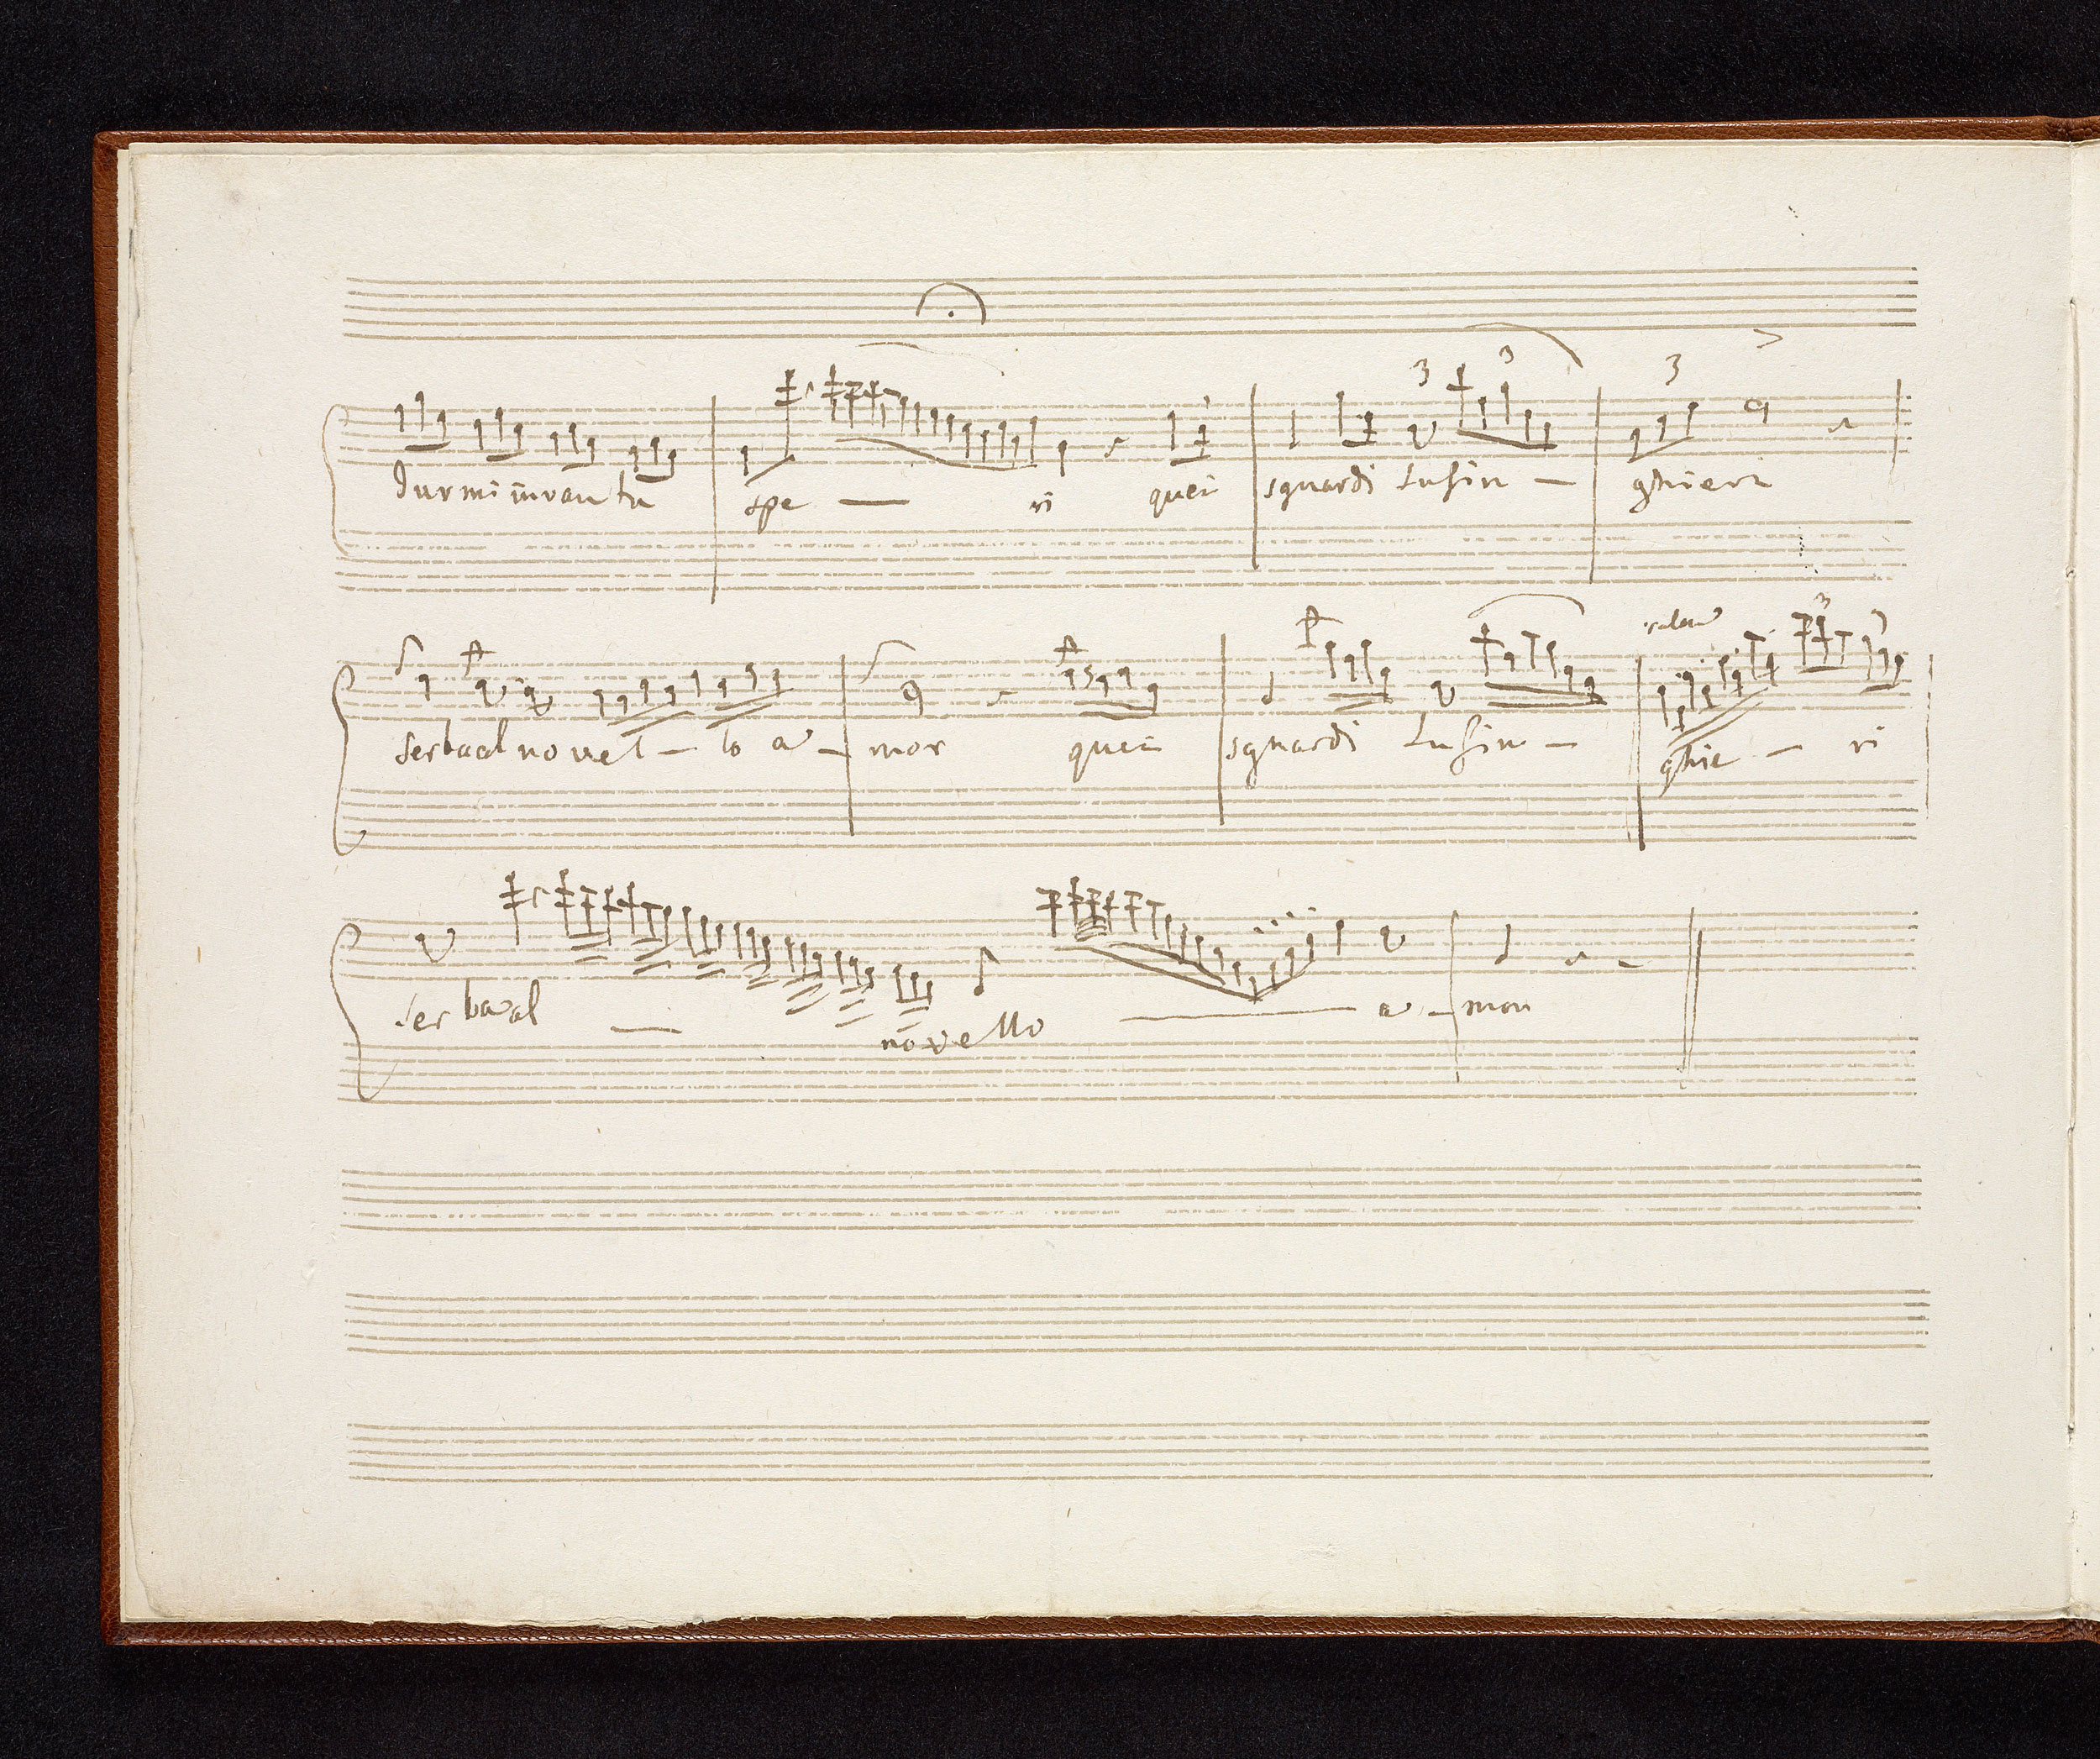 3 3 3
durmi invan tu spe — ri quei sguardi lusin — ghieri
3
serba al novel — lo a — mor quei sguardi lusin — ghie — ri
serba al — novello — a — mor